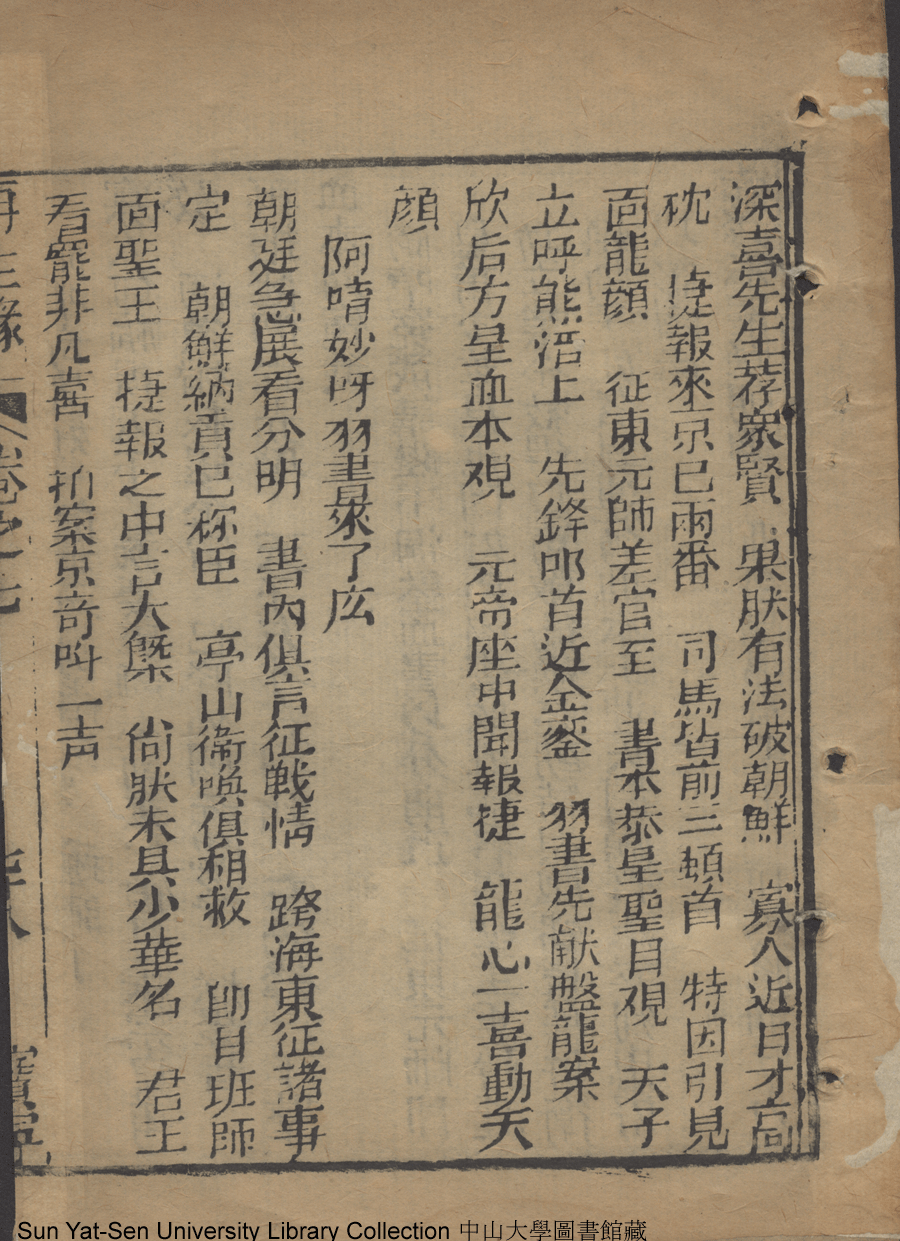 深喜先生荐衆賢 果肰有法破朝鮮 寡人近日才高
枕 捷報來京已兩番 司馬皆前三頓首 特因引見
面龍顔 征東元师差官至 書本恭呈聖目观 天子
立呼熊浩上 先鋒叩首近金鑾 羽書先献盤龍案
欣后方呈血本观 元帝座中聞報捷 龍心一喜動天
顔
阿唷妙呀羽書來了庅
朝廷急展看分明 書內俱言征戦情 跨海東征諸事
定 朝鮮納貢已称臣 亭山衞喚俱相救 卽日班師
面聖王 捷報之中言大槩 尙肰未具少華名 君王
看罷非凡喜 拍案京奇呌一声
再生縁 卷之七 寳寧
Sun Yat-Sen University Library Collection 中山大學圖書館藏